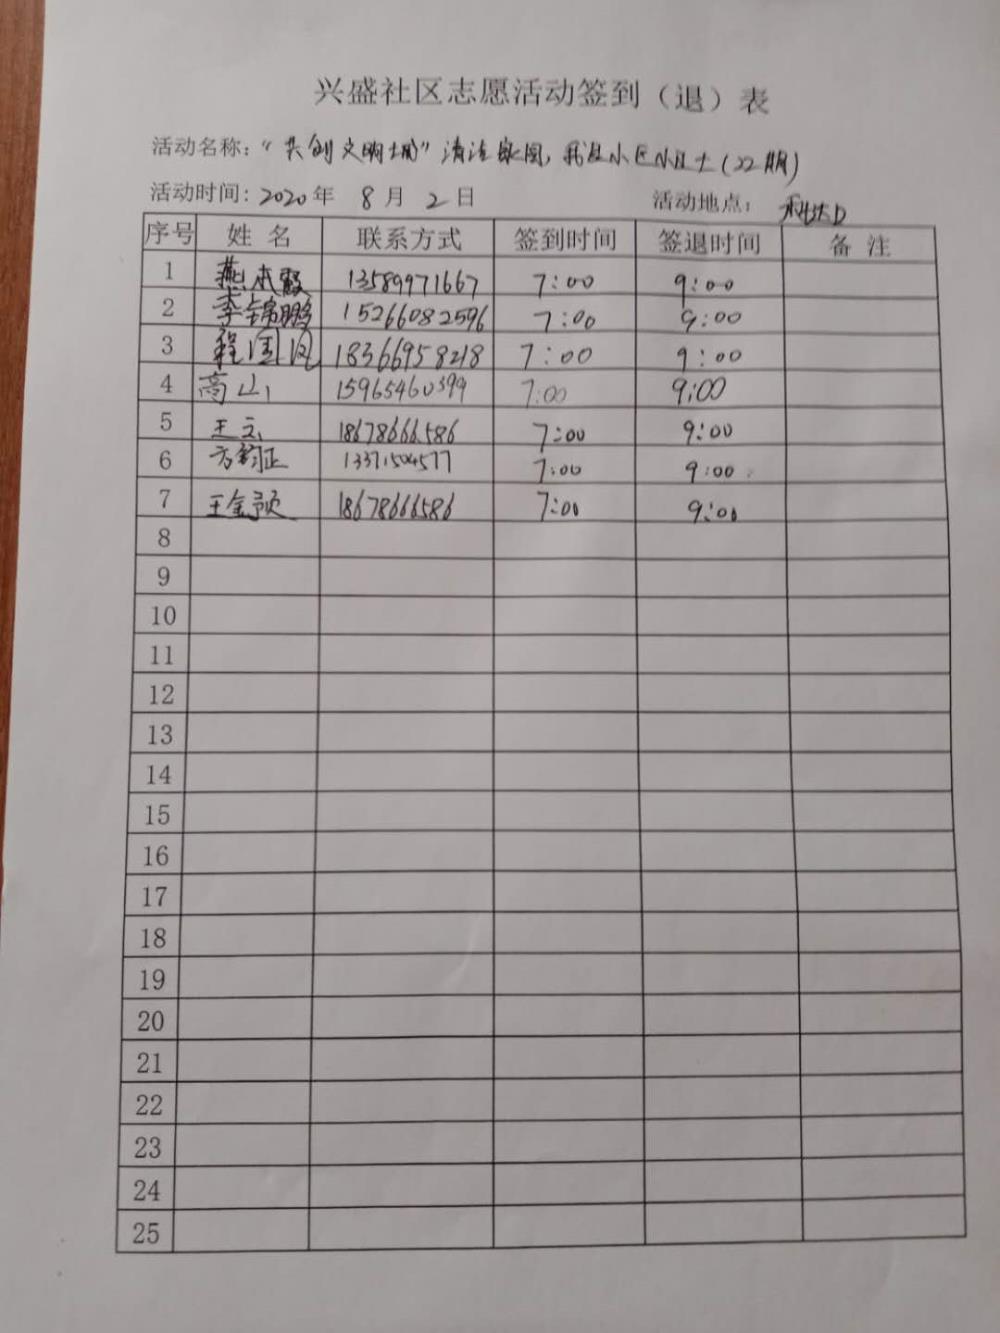 兴盛社区志愿活动签到（退）表
活动名称：“共创文明城”清洁家园，我是小区小卫士（22期）
活动时间：2020年 8月 2日 活动地点：科达D
序号 姓名 联系方式 签到时间 签退时间 备注
1 燕本霞 13589971667 7:00 9:00
2 李锦鹏 15266082596 7:00 9:00
3 程国凤 18366958218 7:00 9:00
4 高山 15965460399 7:00 9:00
5 王云 18678666586 7:00 9:00
6 方韵正 13371504577 7:00 9:00
7 王金颖 18678666586 7:00 9:00
8
9
10
11
12
13
14
15
16
17
18
19
20
21
22
23
24
25